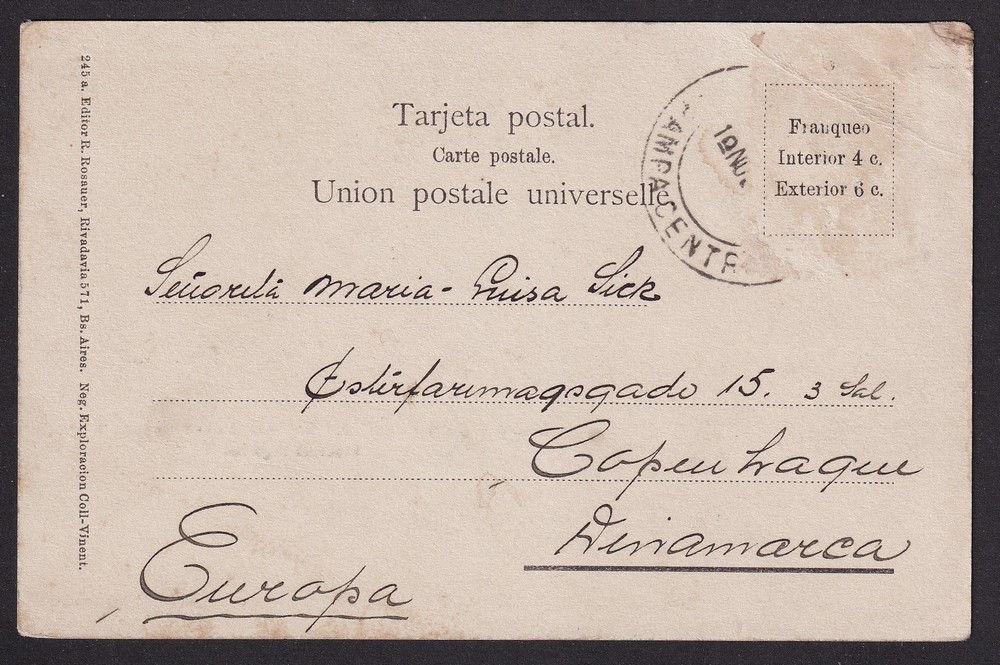 Tarjeta postal.
Carte postale.
Union postale universelle
Franqueo
Interior 4 c.
Exterior 6 c.
PAMPA CENTR
Señorita Maria-Luisa Sick
Østerfarimagsgade 15. 3 Sal.
Copenhague
Dinamarca
Europa
245 a. Editor R. Rosauer, Rivadavia 571, Bs. Aires. Neg. Exploracion Coll-Vinent.